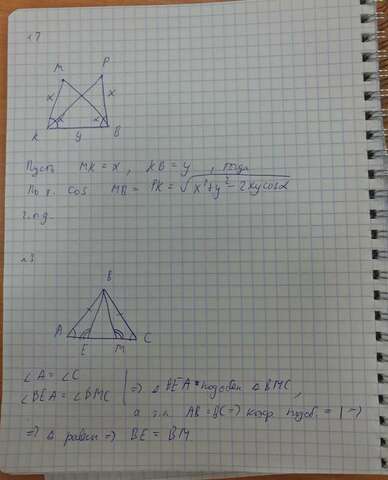 M P
x x
α α
K y B
Пусть MK = x, KB = y, тогда
По т. cos MB = PK = √x²+y²-2xycosα
ч.т.д.
B
A E M C
∠A = ∠C
∠BEA = ∠BMC | => △BEA подобен △BMC,
а т.к. AB = BC => коэф. подоб. = 1 =>
=> △ равны => BE = BM